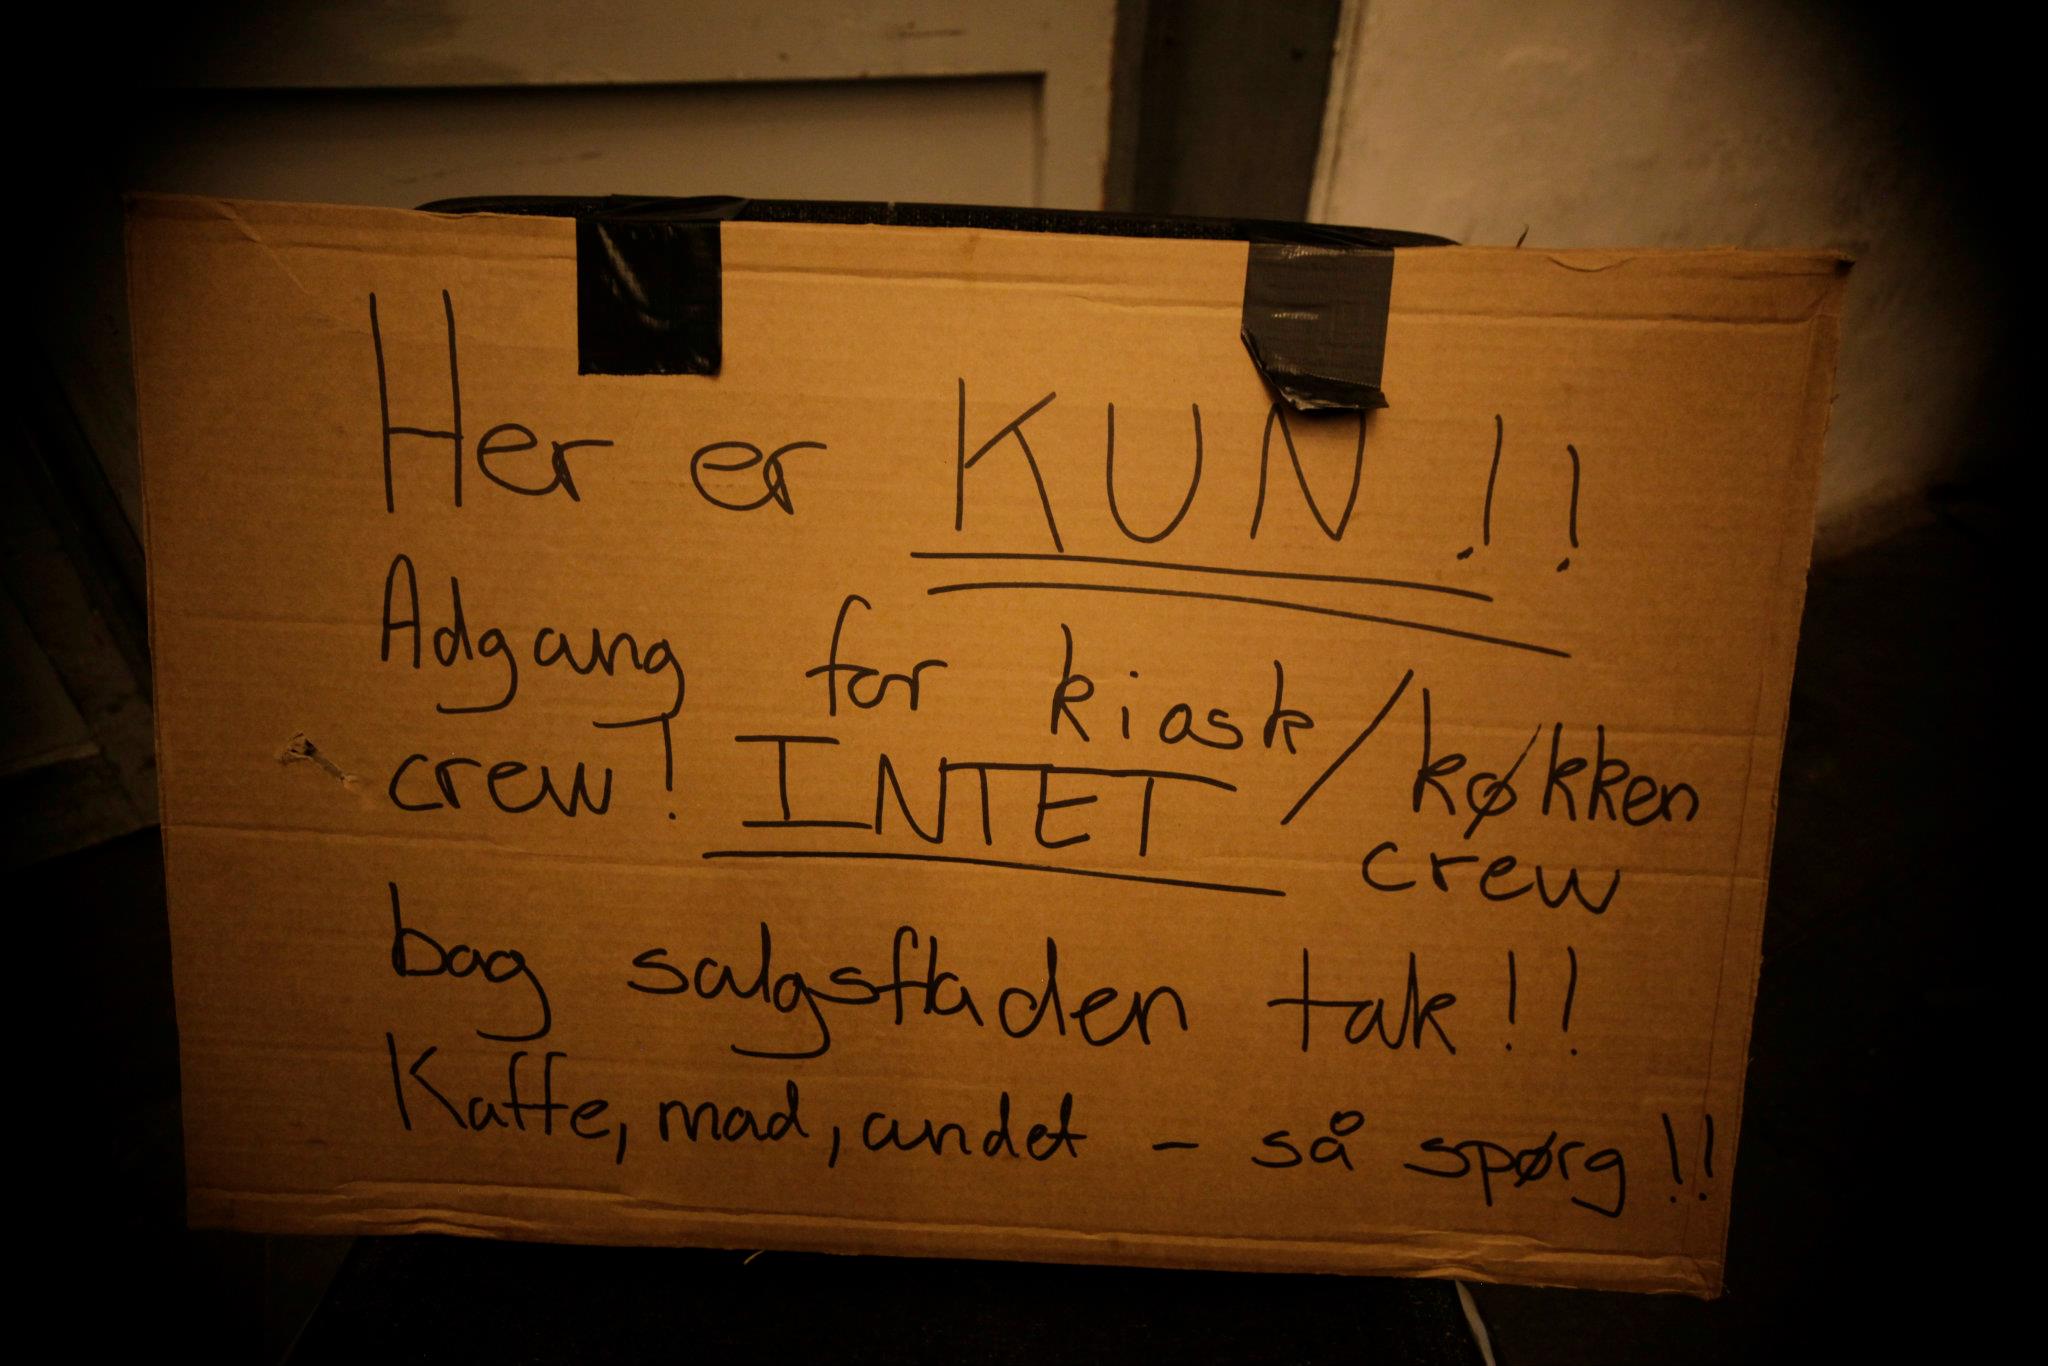 Her er KUN!!
Adgang for kiosk/køkken
crew! INTET crew
bag salgsfladen tak!!
Kaffe, mad, andet - så spørg!!